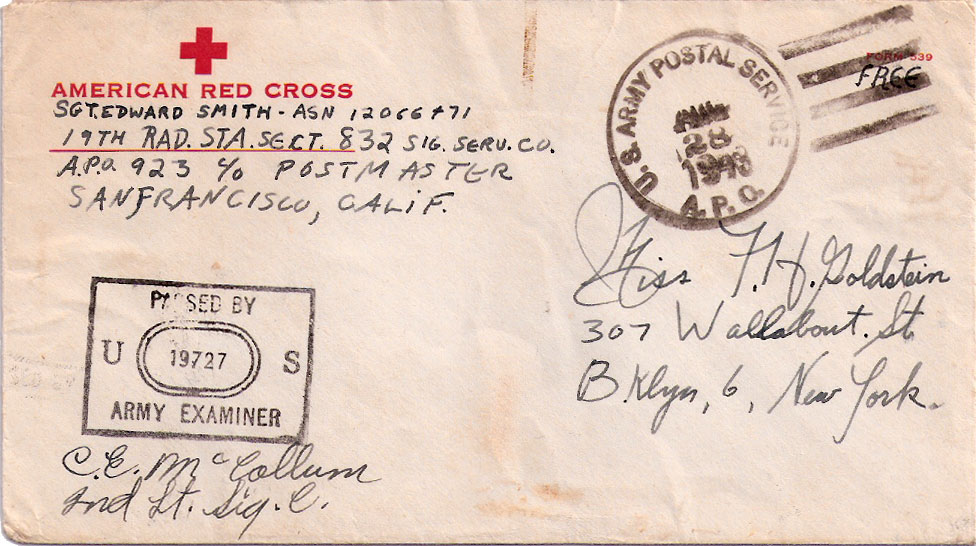 AMERICAN RED CROSS
SGT. EDWARD SMITH - ASN 12066471
19TH RAD. STA. SECT. 832 SIG. SERV. CO.
A.P.O. 923 c/o POSTMASTER
SANFRANCISCO, CALIF.
U.S. ARMY POSTAL SERVICE
28
1943
A.P.O.
FORM 539
FREE
Miss F. H. Goldstein
307 Wallabout. St
B.Klyn, 6, New York.
PASSED BY
U 19727 S
ARMY EXAMINER
C.E. McCollum
2nd Lt. Sig. C.